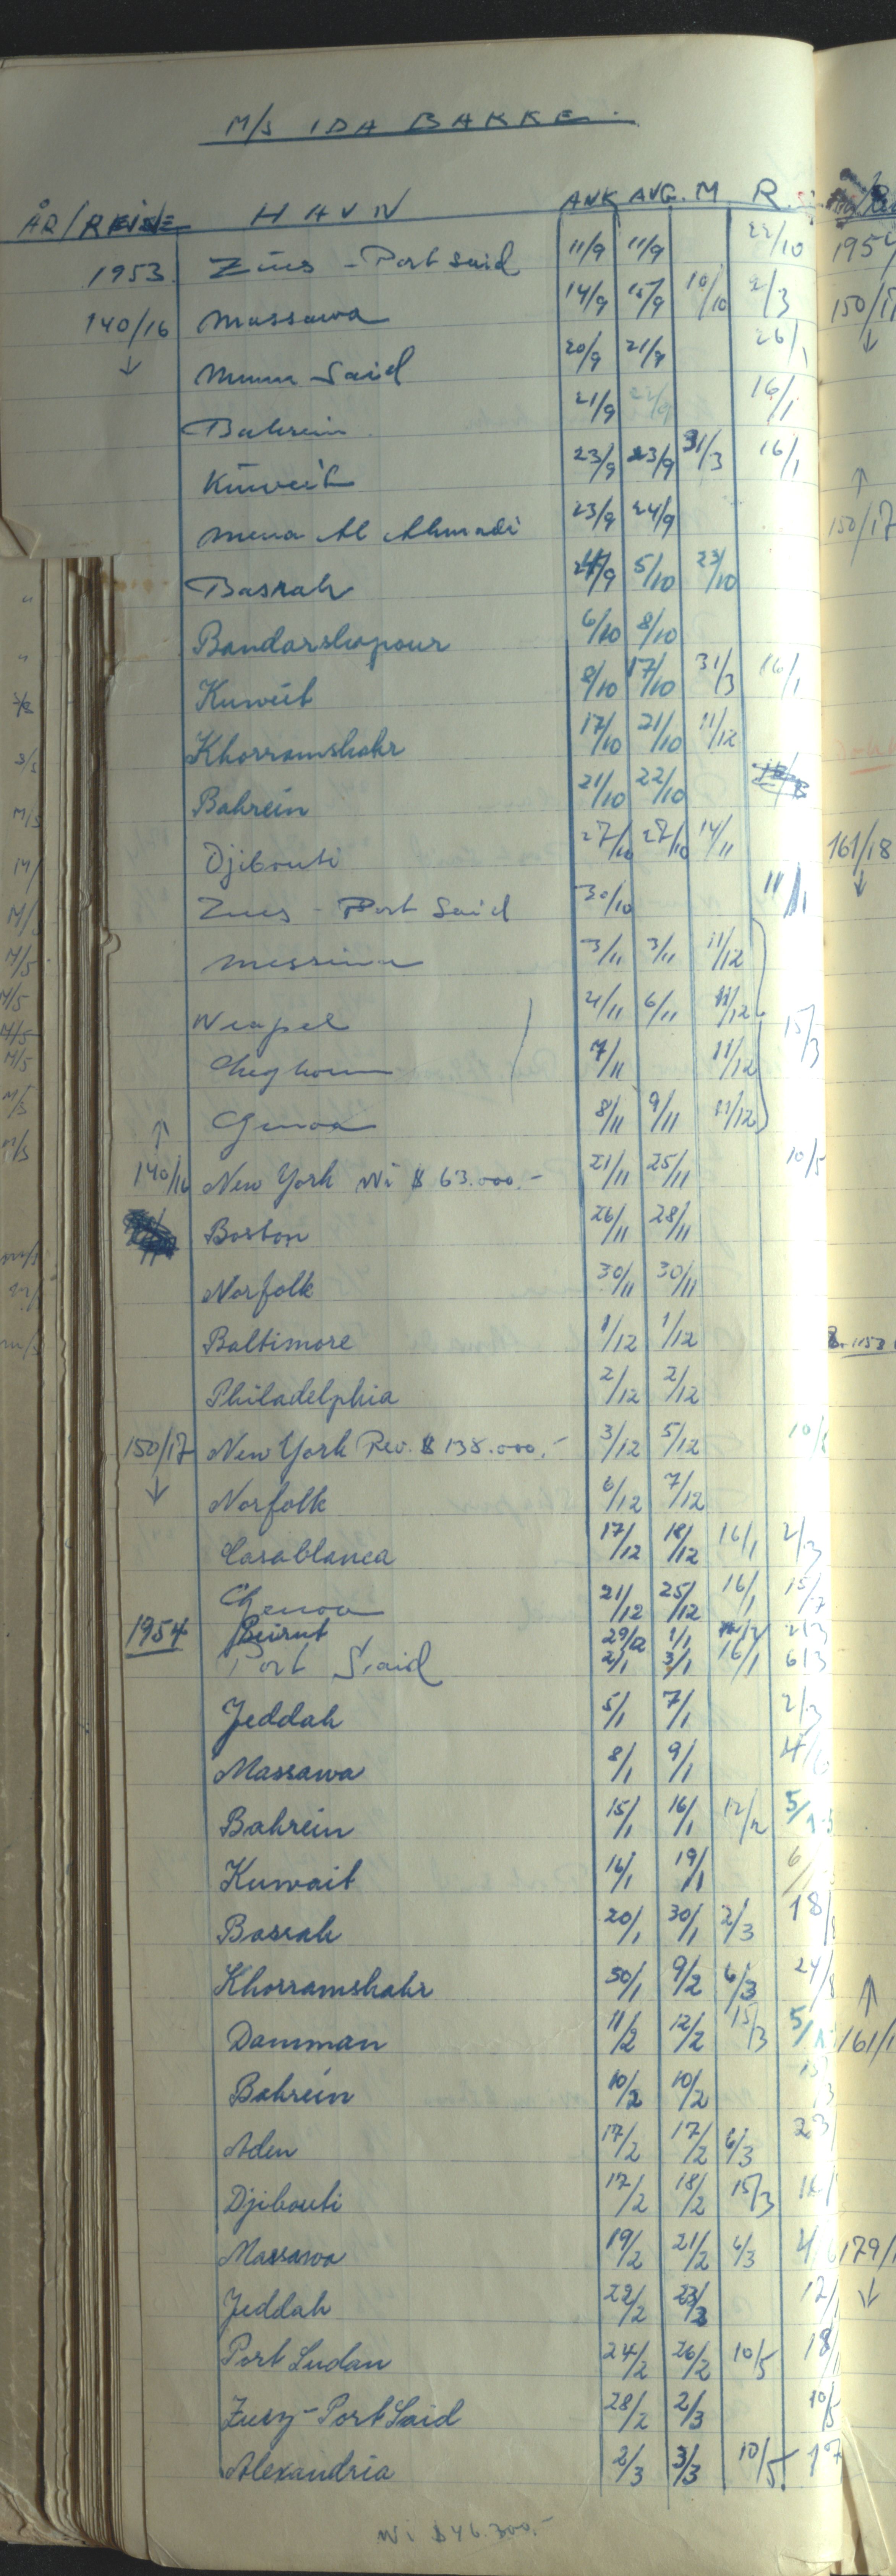 M/S IDA BAKKE
ÅR/REISE HAVN ANK AVG. M R.
1953 Zues - Port Said 11/9 11/9 22/10
140/16 Massawa 14/9 15/9 10/10 2/3
↓ Said 20/9 21/9 26/1
Bahrein 21/9 22/9 16/1
Kuweit 23/9 23/9 31/3 16/1
Mena Al Ahmadi 23/9 24/9
Basrah 24/9 5/10 23/10
Bandarshapour 6/10 8/10
Kuweit 8/10 17/10 31/3 16/1
Khorramshahr 17/10 21/10 11/12
Bahrein 21/10 22/10
Djibouti 27/10 27/10 14/11
Zues - Port Said 30/10 11/1
Messina 3/11 3/11 11/12
Neapel 4/11 6/11 11/12 15/3
Leghorn 7/11 11/12
↑ Genoa 8/11 9/11 11/12
140/16 New York Ni $ 63.000.- 21/11 25/11 10/5
Boston 26/11 28/11
Norfolk 30/11 30/11
Baltimore 1/12 1/12
Philadelphia 2/12 2/12
150/17 New York Rev. $ 138.000,- 3/12 5/12
↓ Norfolk 6/12 7/12
Casablanca 17/12 18/12 16/1 2/3
Genoa 21/12 25/12 16/1
1954 Beirut 29/12 1/1 2/3
Port Said 2/1 3/1 16/1 6/3
Jeddah 5/1 7/1 2/3
Massawa 8/1 9/1
Bahrein 15/1 16/1 12/2
Kuwait 16/1 19/1
Basrah 20/1 30/1 2/3 18/8
Khorramshahr 30/1 9/2 6/3 24/8
Damman 11/2 12/2 15/3
Bahrein 10/2 10/2
Aden 17/2 17/2 6/3
Djibouti 17/2 18/2 15/3
Massawa 19/2 21/2 6/3
Jeddah 22/2 23/2
Port Sudan 24/2 26/2 10/5
Zuez - Port Said 28/2 2/3 10/5
Alexandria 2/3 3/3 10/5
Ni $46.300.-
150/17
↑
150/17
161/18
↓
↑
↓